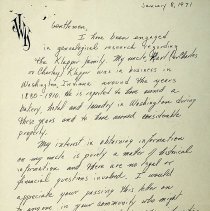 January 8, 1971
Gentlemen,
I have been engaged
in genealogical research regarding
the Klapper family. My uncle, Karl
or Charles Klapper was in business in
Washington, Indiana around the years
1880-1910. He is reported to have owned a
bakery, hotel and laundry in Washington during
these years and to have owned considerable
property.
My interest in obtaining information
on my uncle is purely a matter of historical
information and there are no legal or
financial questions involved. I would
appreciate your passing this letter on
to anyone in your community who might